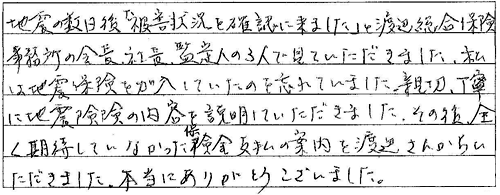 地震の数日後「被害状況を確認に来ました」と渡辺総合保険
事務所の会長、社長、鑑定人の3人で見ていただきました。私
は地震保険を加入していたのを忘れていました。親切、丁寧
に地震険険の内容を説明していただきました。その後、全
く期待していなかった保険金支払の案内を渡辺さんからい
ただきました。本当にありがとうございました。